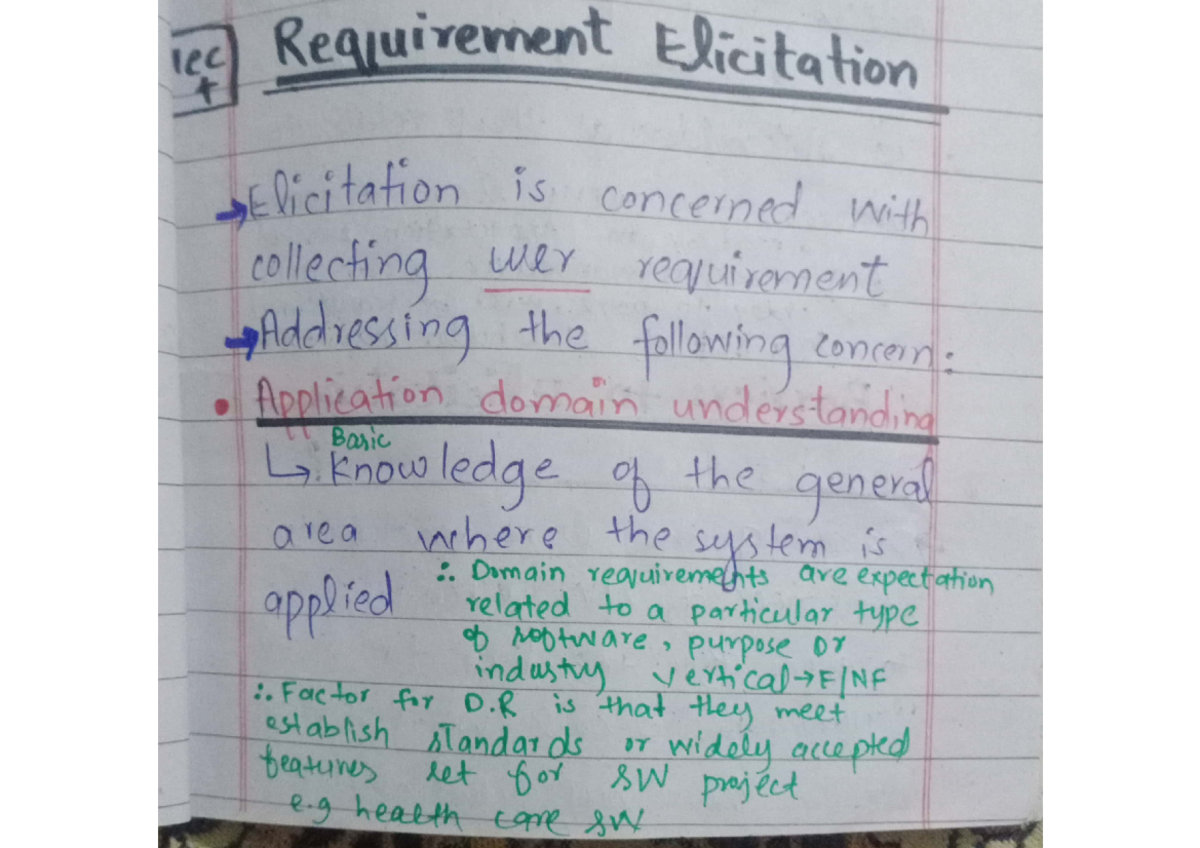 lec
Requirement Elicitation
→ Elicitation is concerned with
collecting user requirement
→ Addressing the following concern:
• Application domain understanding
Basic
↳ Knowledge of the general
area where the system is
applied
∴ Domain requirements are expectation
related to a particular type
of software, purpose or
industry vertical → F/NF
∴ Factor for D.R is that they meet
establish standards or widely accepted
features set for SW project
e.g health care SW